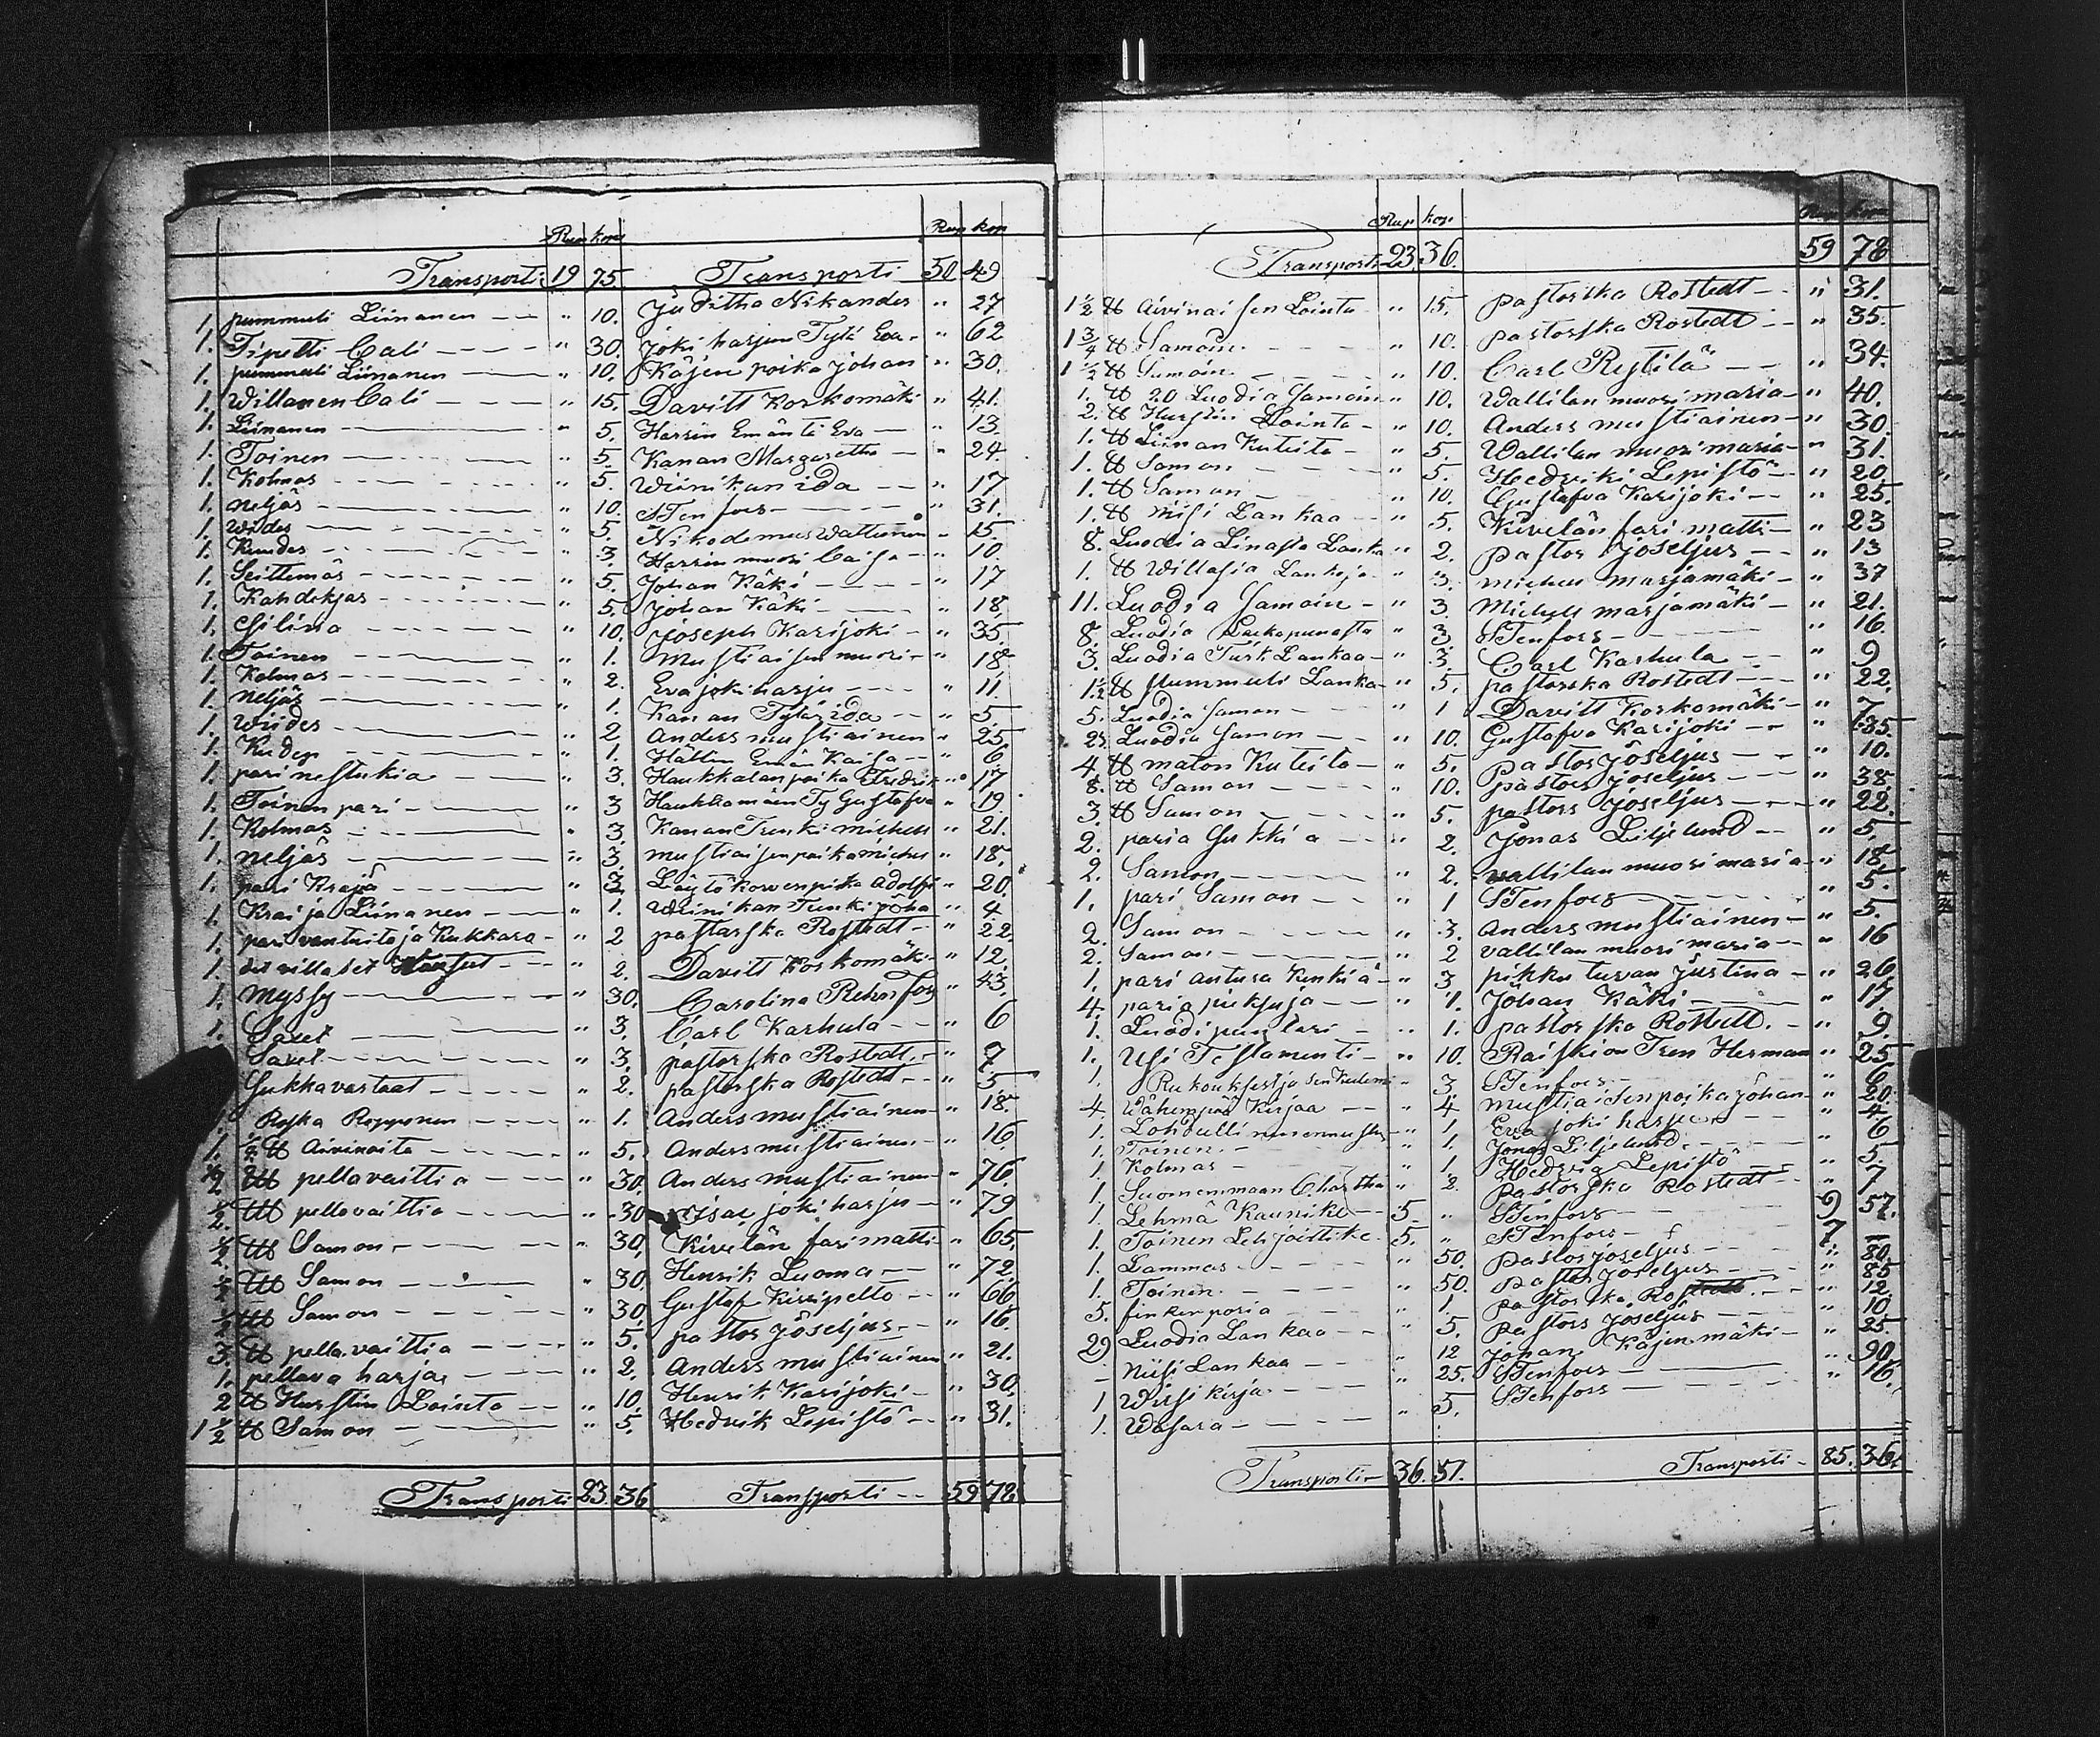 Rup kop Rup kop
Transporti 19 75. Transporti 50 49
1. pummuli Liinanen " 10. Juditha Nikander " 27
1. Tipetti Cali " 30. joki harjun Tytä Eva " 62
1. pummuli Liinanen " 10. Käjen poika johan " 30.
1. Willanen Cali " 15. Davitt Korkomäki " 41.
1. Liinanen " 5. Harsin Emänti Eva " 13
1. Toinen " 5. Kanan Margaretha " 24
1. Kolmas " 5. Wiinikan ida " 17
1. neljäs " 10. STenfors " 31.
1. Wides " 5. Nikodemus Wattunen " 15.
1. Kuudes " 3. Harsin muori Caisa " 10.
1. Seittemäs " 5. Johan Käki " 17
1. Kahdekjas " 5. Johan Käki " 18.
1. Silina " 10. Joseph Karijoki " 35
1. Toinen " 1. mustiaisen muori " 18
1. Kolmas " 2. Eva jokiharju " 11.
1. neljäs " 1. Kanan Tytär ida " 5
1. Wiides " 2 Anders mustiainen " 25
1. Kudes " 1. Hällin Emän Kaisa " 6
1. pari nestukia " 3. Haukkalan poika Fredrik " 17
1. Toinen pari " 3 Haukkamäen Ty Gustafva " 19
1. Kolmas " 3. Kanan Trenki michell " 21.
1. neljäs " 3. mustiaisen poika michel " 18.
1. pari Krajä " 3. Löytökorven poika Adolfi " 20.
1. Kraija Liinanen " 1. Wiinikan Trenki jöha " 4
1. pari vantuita ja Kukkara " 2 pastorska Rostedt " 22.
1. det villaset " 2. Davitt Korkomäki " 12.
1. myssy " 30. Carolina Rehnfors " 43.
1. Saxet " 3. Carl Karhula " 6
Saxet " 3. pastorska Rostedt. " 7
Sukkavartaat " 2. pastorska Rostedt " 5
Roska Ropponen " 1. Anders mustiainen " 18.
1. ½ ℔ Aivinoita " 5. Anders mustiainen " 16
½ L℔ pellavaittia " 30. Anders mustiainen " 76.
½ L℔ pellavaittia " 30 Isac jokiharju " 79
½ L℔ Samon " 30, Kivelän fari matti " 65.
½ L℔ Samon " 30. Henrik Luoma " 72.
½ L℔ Samon " 30, Gustaf Kivipelto " 66
3. ℔ pellavaittia " 5. pastor jöseljus " 16.
1. pellava harja " 2. Anders mustiainen " 21.
2 ℔ Hurstin Lointa " 10. Henrik Karijoki " 30.
1 ½ ℔ Samon " 5. Hedvik Lepistö " 31.
Transporti 23. 36 Transporti 59 78
Rup kop
Transporti 23 36. 59 78
1 ½ ℔ Aivinaisen Lointa " 15. pastorska Rostedt " 31.
1 ¾ ℔ Samoin " 10. pastorska Rostedt " 35.
1 ½ ℔ Samoin " 10. Carl Rejtilä " 34.
1. ℔ 20 Luodia Samoin " 10. Wallilan muori maria " 40.
2. ℔ Hurstin Lointa " 10. Anders mustiainen " 30.
1. ℔ Liinan Kuteita " 5. Wallilan muori maria " 31.
1. ℔ Samon " 5. Hedviki Lepistö " 20.
1. ℔ Samon " 10. Gustafva Karijoki " 25.
1. ℔ niisi Lankaa " 5. Kivelän fari matti " 23
8. Luodia Linasta Lanka " 2. pastor Joseljus " 13
1. ℔ Willasia Lankoja " 3. michell marjamäki " 37
11. Luodia Samoin " 3. Michell marjamäki " 21.
8. Luodia " 3 STenfors " 16.
3. Luodia Turk Lankaa " 3. Carl Karhula " 9
1 ½ ℔ Pummuli Lanka " 5. pastorska Rostedt " 22.
5. Luodia Samon " 1 Davitt Korkomäki " 7
23. Luodia Samon " 10. Gustafva Karijoki " 35
4. ℔ maton Kuteita " 5. pastor jöseljus " 10.
8. ℔ Samon " 10. pastors joseljus " 38.
3. ℔ Samon " 5. pastors Joseljus " 22.
2. paria Sukkia " 2. Jonas Liljelund " 5
2. Samon " 2. vallilan muori maria " 18
1. pari Samon " 1 STenfors " 5.
2. Samon " 3. Anders mustiainen " 5.
2. Samon " 2 vallilan muori maria " 16
1. pari antura Kenkiä " 3 pikku turvan justina " 26.
4. paria pieksuja " 1. Johan Käki " 17
1. Luodi puntari " 1. pastorska Rostedt. " 9.
1. Usi Testamenti " 10. Raiskion Tren Herman " 25
1. " 3. STenfors " 6
4. Wähempää Kirjaa " 4 mustiaisen poika jöhan " 20.
1. " 1. Eva joki harju " 4
1. Toinen " 1. Jonas Liljelund " 6
1. Kolmas " 1 Hedvig Lepistö " 5.
1. Suomenmaan Chartta " 2. pastorska Rostedt " 7
1. Lehmä Kaunike 5. " STenfors 9 57.
1. Toinen 5. " STenfors 7 —
1. Lammas " 50. pastor joseljus " 80.
1. Toinen. " 50. pastor joseljus " 85
5. " 1. pastorska Rostedt " 12
29 Luodia Lankaa " 5. pastors Joseljus " 10
— Niisi Lankaa " 12 johan Käjenmäki " 25
1 Wirsi kirja " 25. STenfors " 90.
1. Wasara " 5. STenfors " 16.
Transporti 36. 51. Transporti 85. 36.